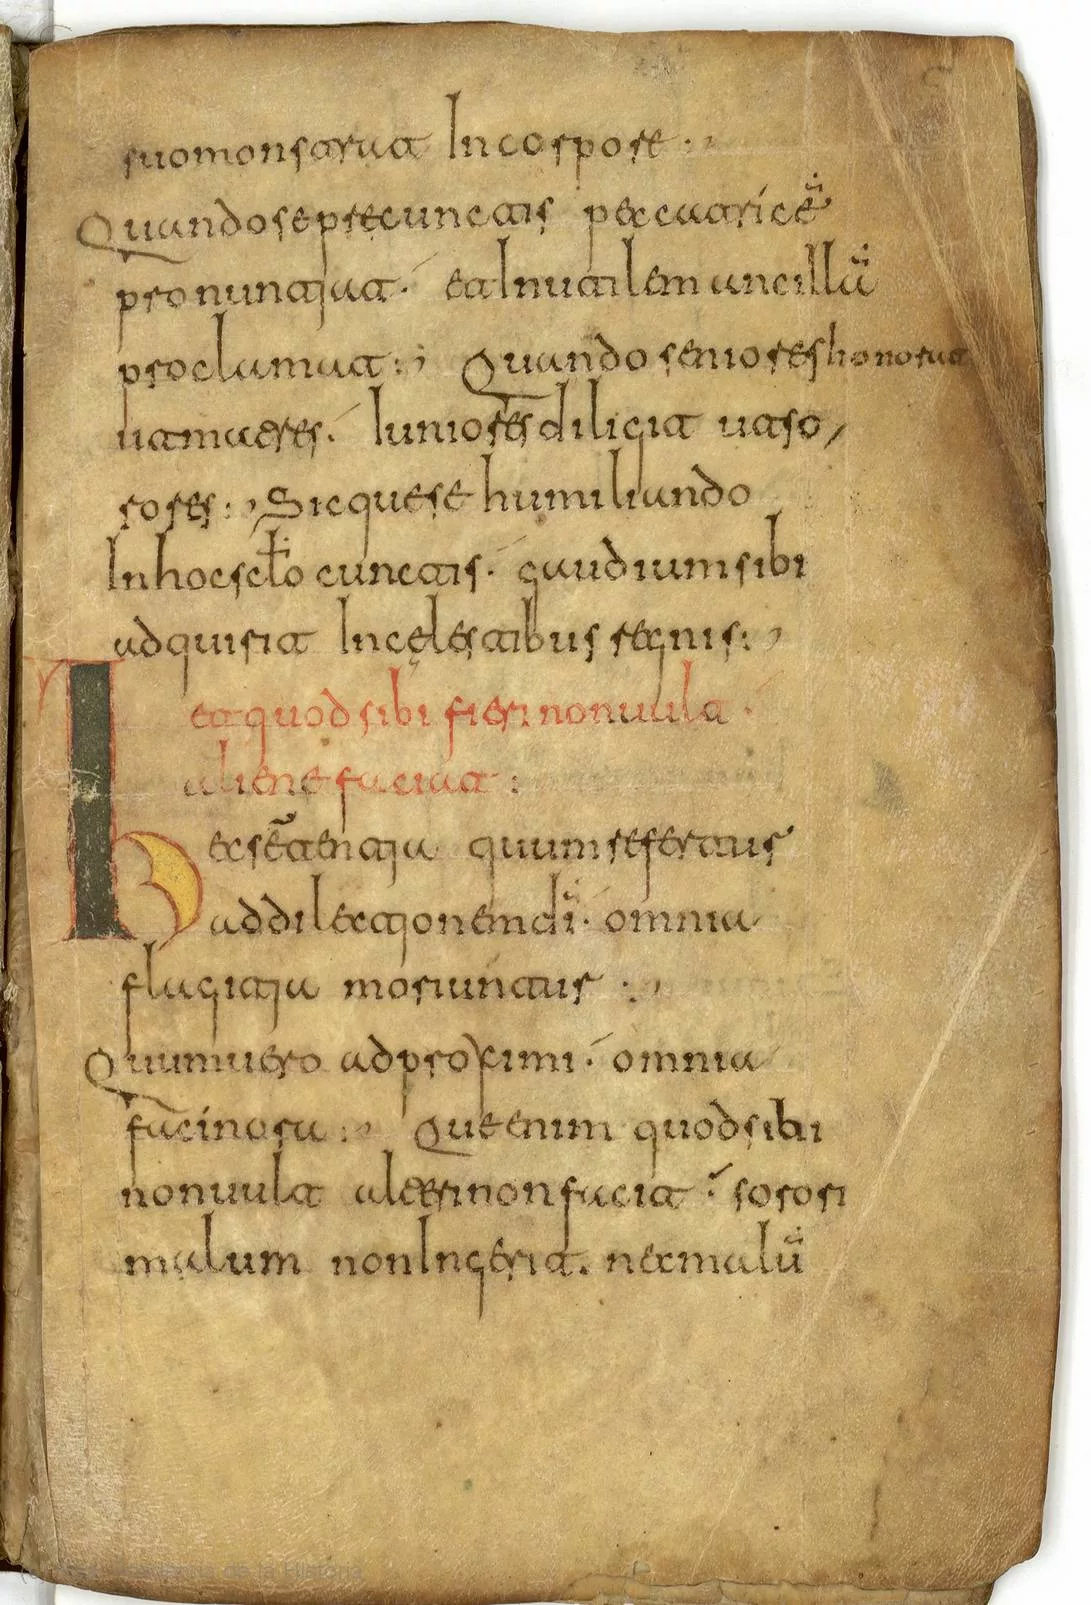 suo monstrat In corpore :,
Quando se pre cunctis peccatricẽ
pronuntjat · et Inutilem ancillã
proclamat :, Quando seniores honorat
ut matres · Iuniores diligit ut so,
rores :, Sicque se humiliando
In hoc sclo cunctis · gaudium sibi
adquirit In celestibus regnis :,
Ut quod sibi fieri non uult ·
aliene faciat :
Hec sẽtentja quum refertur
ad dilectjonem dĩ · omnia
flagitja moriuntur :,
Quum uero ad proximi · omnia
facinora :, Que enim quod sibi
non uult alteri non facit · sorori
malum non Ingerit . nec malũ